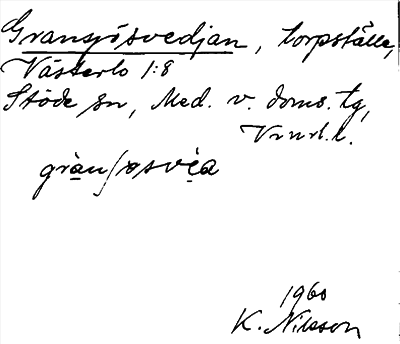 Gransjösvedjan, torpställe,
Västerlo 1:8
Stöde sn, Med. v. doms. tg,
Vnrl. l.
grànʃøsvèa
1960
K. Nilsson